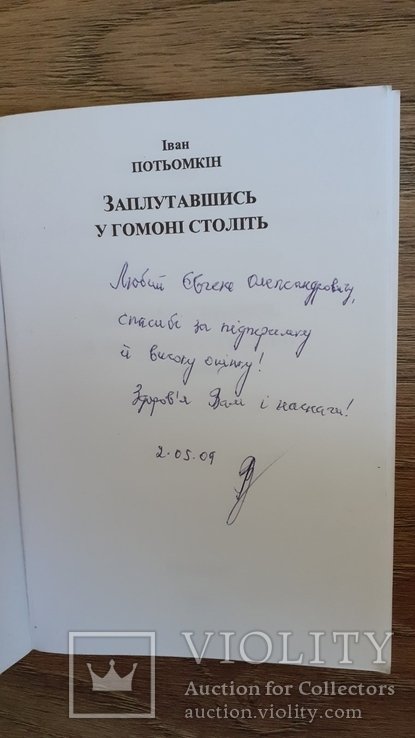 Іван
ПОТЬОМКІН
ЗАПЛУТАВШИСЬ
У ГОМОНІ СТОЛІТЬ
Любий Євгене Олександровичу,
спасибі за підтримку
й високу оцінку!
Здоров'я Вам і наснаги!
2.05.09
VIOLITY
Auction for Collectors
auction.violity.com